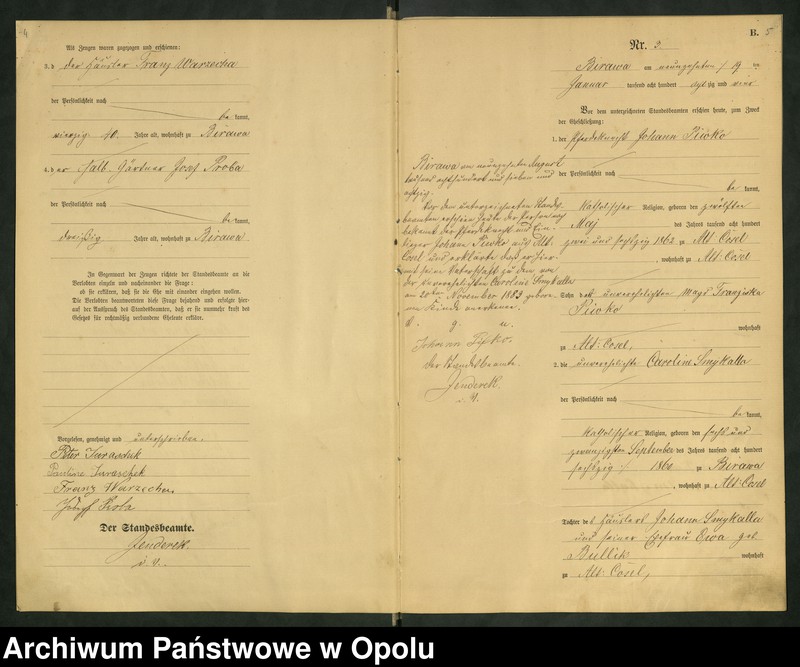 4
Als Zeugen waren zugezogen und erschienen:
3. der Häusler Franz Warzecha
der Persönlichkeit nach
be kannt,
vierzig 40. Jahre alt, wohnhaft zu Birawa
4. der Halb Gärtner Josef Proba
der Persönlichkeit nach
be kannt,
dreißig Jahre alt, wohnhaft zu Birawa
In Gegenwart der Zeugen richtete der Standesbeamte an die
Verlobten einzeln und nacheinander die Frage:
ob sie erklären, daß sie die Ehe mit einander eingehen wollen.
Die Verlobten beantworteten diese Frage bejahend und erfolgte hier-
auf der Ausspruch des Standesbeamten, daß er sie nunmehr kraft des
Gesetzes für rechtmäßig verbundene Eheleute erkläre.
Vorgelesen, genehmigt und unterschrieben.
Peter
Pauline Juraschek
Franz Warzecha
Josef
Der Standesbeamte.
Jenderek.
i. V.
B. 5
Nr. 3.
Birawa am neunzehnten / 19 ten
Januar tausend acht hundert acht zig und vier
Vor dem unterzeichneten Standesbeamten erschienen heute, zum Zweck
der Eheschließung:
1. der Pferdeknecht Johann Piwko
der Persönlichkeit nach
be kannt,
katholischer Religion, geboren den zwölften
Maj des Jahres tausend acht hundert
zwei und sechszig 1862 zu Alt Cosel
, wohnhaft zu Alt-Cosel
Sohn der unverehelichten Magd Franziska
Piwko
wohnhaft
zu Alt-Cosel,
2. die unverehelichte Caroline Smykalla
der Persönlichkeit nach
be kannt,
katholischer Religion, geboren den sechs und
zwanzigsten September des Jahres tausend acht hundert
sechszig / 1860 zu Birawa
, wohnhaft zu Alt-Cosel
Tochter des Häuslers Johann Smykalla
und seiner Ehefrau Ewa geb
Bullik wohnhaft
zu Alt-Cosel,
Birawa am neunzehnten August
tausend achthundert und sieben und
achtzig.
Vor dem unterzeichneten Standes-
beamten erschien heute der Person nach
bekannt der Pferdeknecht und Ein-
lieger Johann Piwko aus Alt-
Cosel und erklärte daß er hier-
mit seine Vaterschaft zu dem von
der unverehelichten Caroline Smykalla
am 20ten November 1883 geborenen
Kinde anerkenne.
v. g. u.
Johann Pifko.
Der Standesbeamte.
Jenderek.
i. V.
Archiwum Państwowe w Opolu